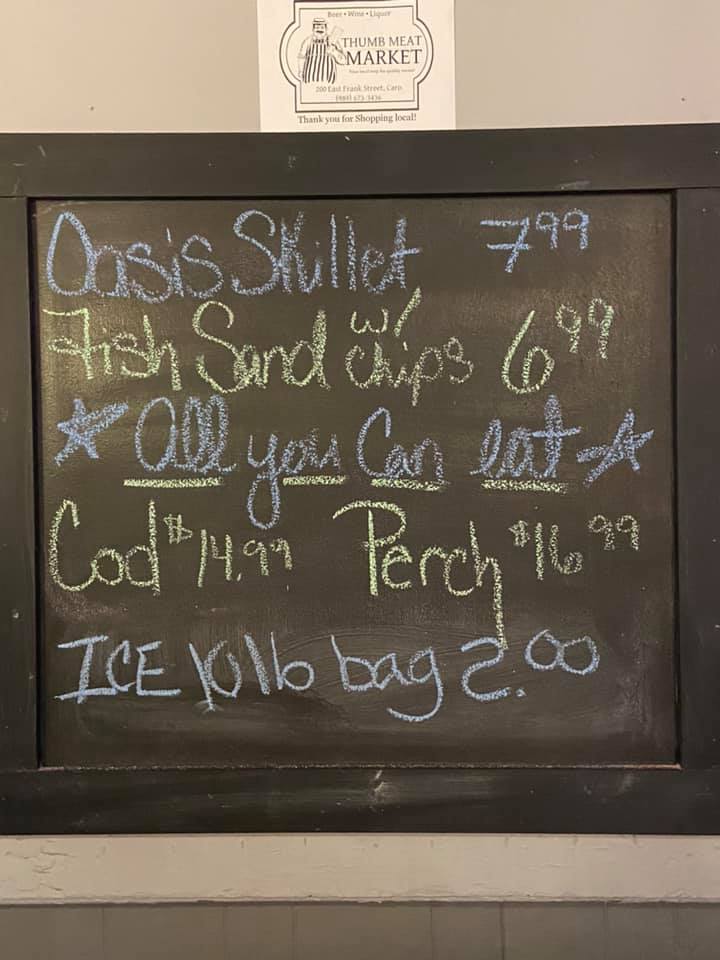 Beer • Wine • Liquor
THUMB MEAT
MARKET
200 East Frank Street, Caro
(989) 673-3436
Thank you for Shopping local!
Oasis Skillet 7.99
Fish Sand w/ chips 6.99
All you Can eat
Cod $14.99 Perch $16.99
ICE 10 lb bag 2.00